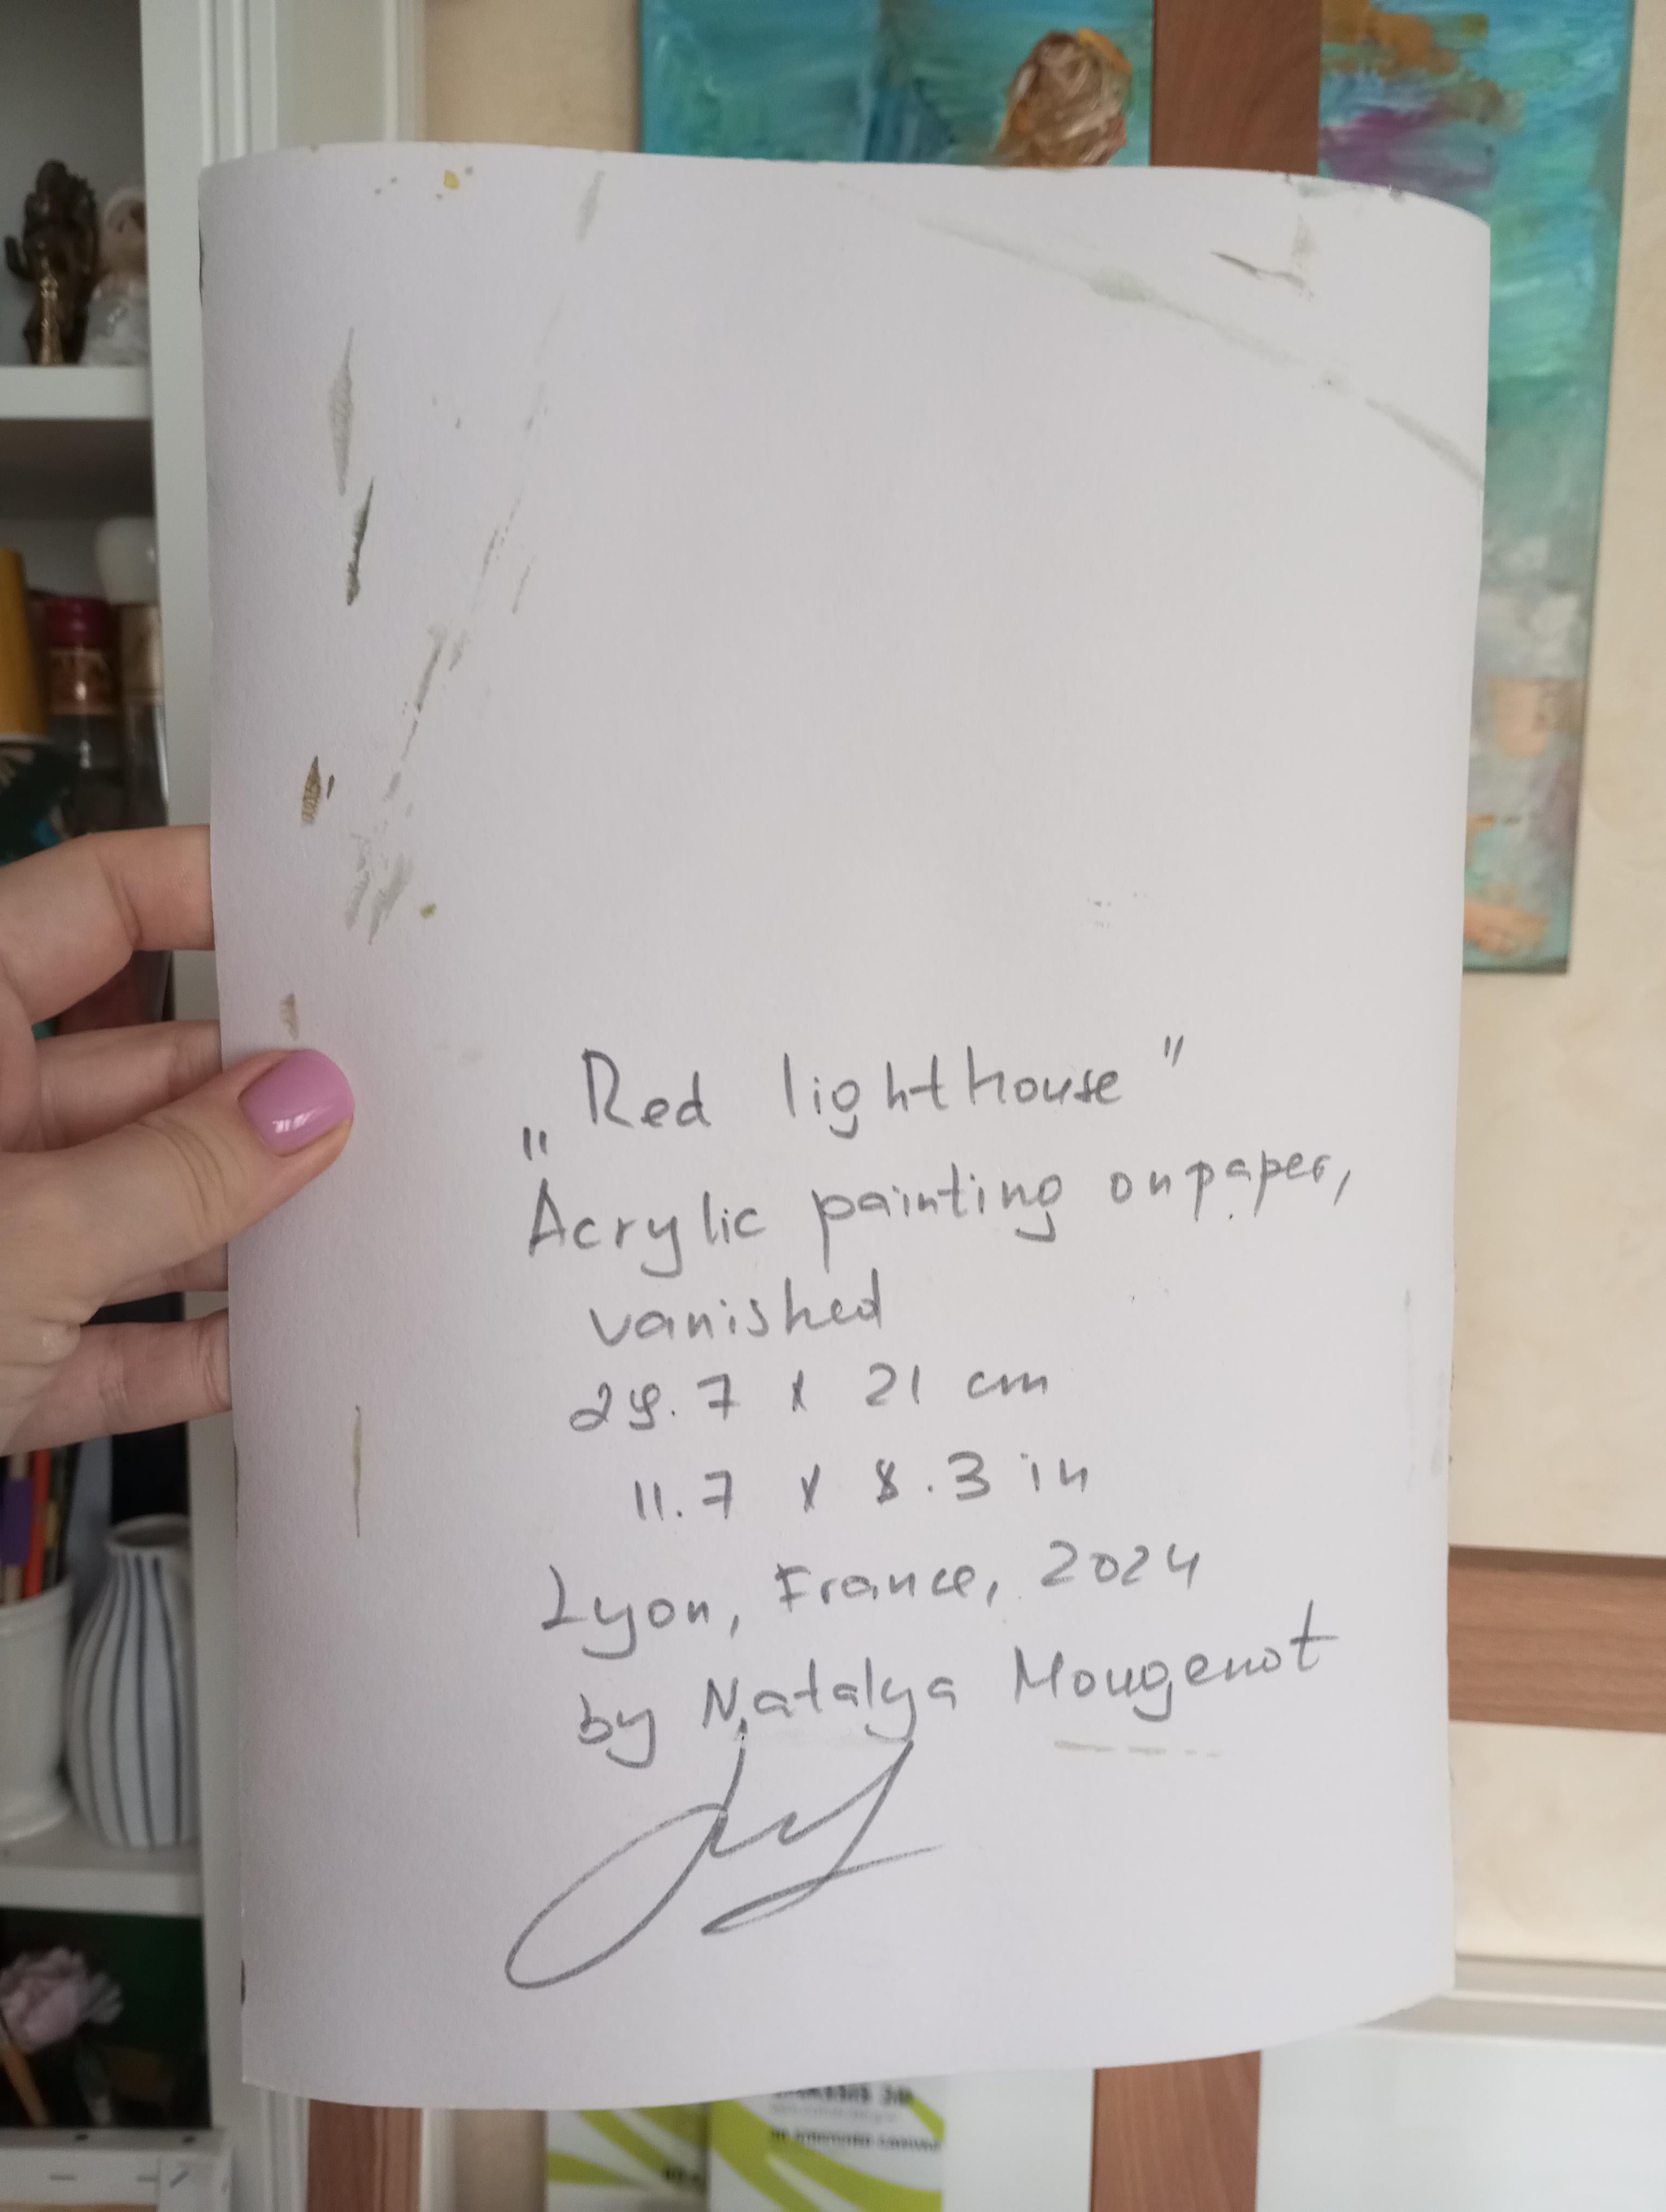 „Red lighthouse"
Acrylic painting on paper,
vanished
29.7 x 21 cm
11.7 x 8.3 in
Lyon, France, 2024
by Natalya Mougenot